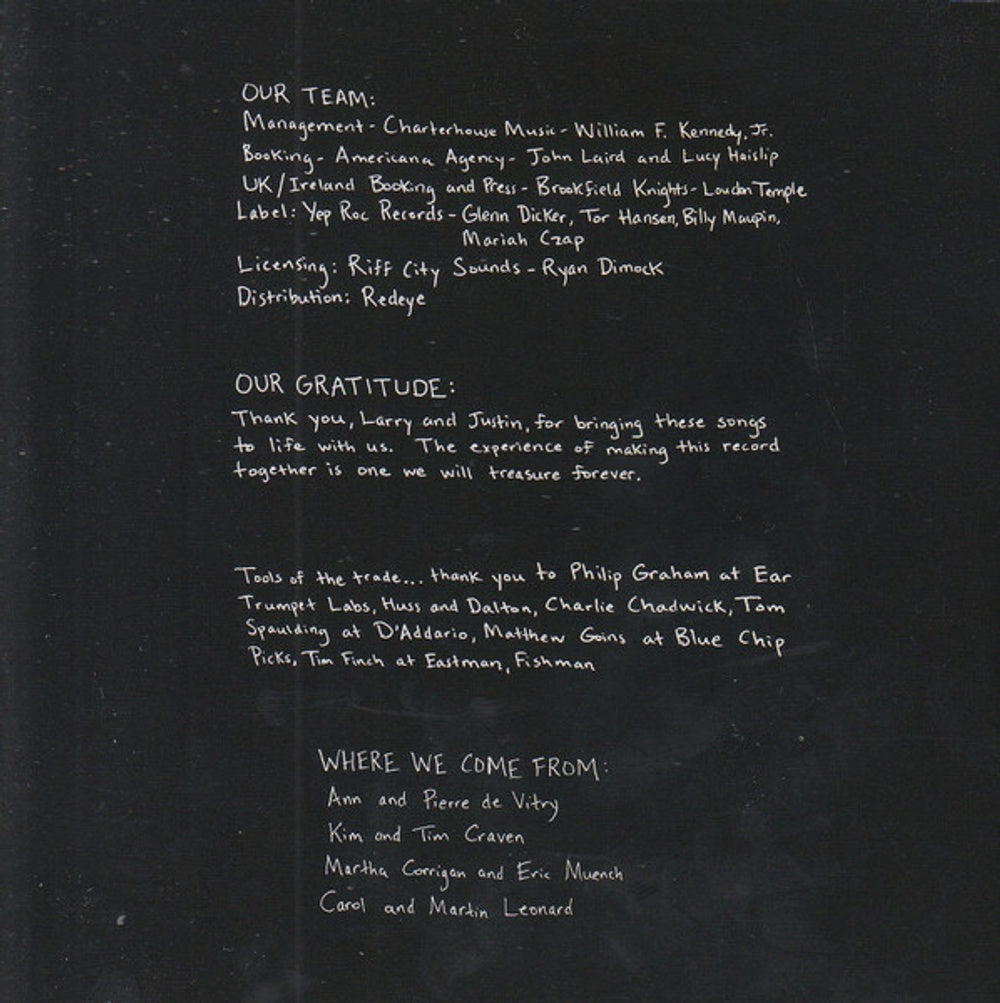 OUR TEAM:
Management - Charterhouse Music - William F. Kennedy, Jr.
Booking - Americana Agency - John Laird and Lucy Haislip
UK/Ireland Booking and Press - Brookfield Knights - Loudon Temple
Label: Yep Roc Records - Glenn Dicker, Tor Hansen, Billy Maupin,
Mariah Czap
Licensing: Riff City Sounds - Ryan Dimock
Distribution: Redeye
OUR GRATITUDE:
Thank you, Larry and Justin, for bringing these songs
to life with us. The experience of making this record
together is one we will treasure forever.
Tools of the trade... thank you to Philip Graham at Ear
Trumpet Labs, Huss and Dalton, Charlie Chadwick, Tom
Spaulding at D'Addario, Matthew Goins at Blue Chip
Picks, Tim Finch at Eastman, Fishman
WHERE WE COME FROM:
Ann and Pierre de Vitry
Kim and Tim Craven
Martha Corrigan and Eric Muench
Carol and Martin Leonard